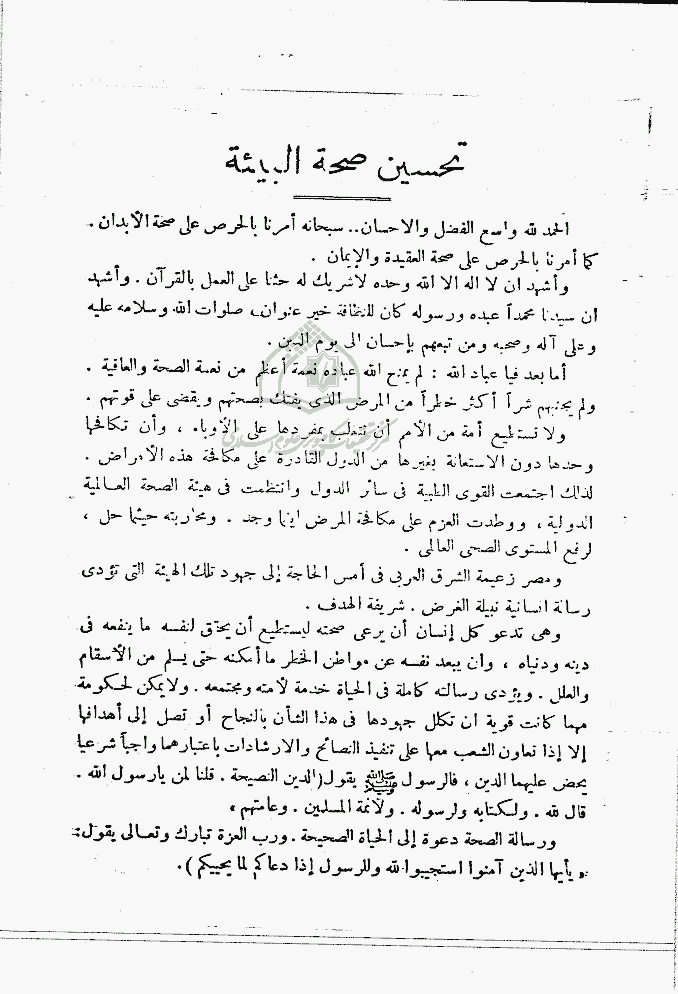 تحسين صحة البيئة
الحمد لله واسع الفضل والاحسان.. سبحانه أمرنا بالحرص على صحة الأبدان.
كما أمرنا بالحرص على صحة العقيدة والإيمان.
وأشهد ان لا اله الا الله وحده لاشريك له حثنا على العمل بالقرآن. وأشهد
ان سيدنا محمداً عبده ورسوله كان للنظافة خير عنوان، صلوات الله وسلامه عليه
وعلى آله وصحبه ومن تبعهم بإحسان الى يوم الدين.
أما بعد فيا عباد الله : لم يمنح الله عباده نعمة أعظم من نعمة الصحة والعافية.
ولم يجنبهم شراً أكثر خطراً من المرض الذى يفتك بصحتهم ويقضى على قوتهم.
ولا تستطيع أمة من الأمم أن تتغلب بمفردها على الأوباء، وأن تكافحها
وحدها دون الاستعانة بغيرها من الدول القادرة على مكافحة هذه الأمراض.
لذلك اجتمعت القوى الطبية فى سائر الدول وانتظمت فى هيئة الصحة العالمية
الدولية، ووطدت العزم على مكافحة المرض اينما وجد. ومحاربته حيثما حل،
لرفع المستوى الصحى العالى.
ومصر زعيمة الشرق العربى فى أمس الحاجة إلى جهود تلك الهيئة التى تؤدى
رسالة انسانية نبيلة الغرض. شريفة الهدف.
وهى تدعو كل إنسان أن يرعى صحته ليستطيع أن يحقق لنفسه ما ينفعه فى
دينه ودنياه، وأن يبعد نفسه عن مواطن الخطر ما أمكنه حتى يسلم من الأسقام
والعلل. ويؤدى رسالته كاملة فى الحياة خدمة لأمته ومجتمعه. ولا يمكن لحكومة
مهما كانت قوية ان تكلل جهودها فى هذا الشأن بالنجاح أو تصل إلى أهدافها
إلا إذا تعاون الشعب معها على تنفيذ النصائح والارشادات باعتبارهما واجباً شرعيا
يحض عليهما الدين، فالرسول ﷺ يقول (الدين النصيحة. قلنا لمن يارسول الله.
قال لله. ولكتابه ولرسوله. ولأئمة المسلمين. وعامتهم،
ورسالة الصحة دعوة إلى الحياة الصحيحة. ورب العزة تبارك وتعالى يقول:
« يأيها الذين آمنوا استجيبوا لله وللرسول إذا دعاكم لما يحييكم ).